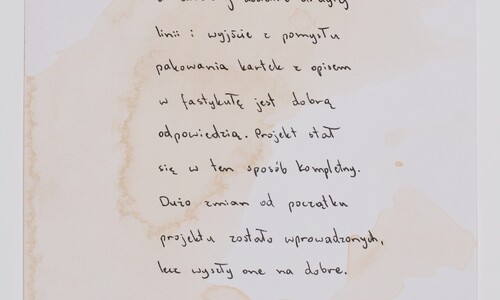 linii i wyjście z pomysłu
pakowania kartek z opisem
w fastykułę jest dobrą
odpowiedzią. Projekt stał
się w ten sposób kompletny.
Dużo zmian od początku
projektu zostało wprowadzonych,
lecz wyszły one na dobre.